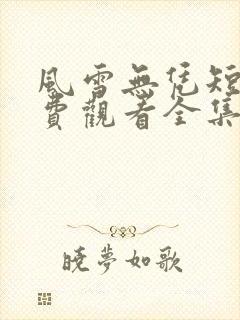 風雪無凭短
費觀看全集
曉夢如歌